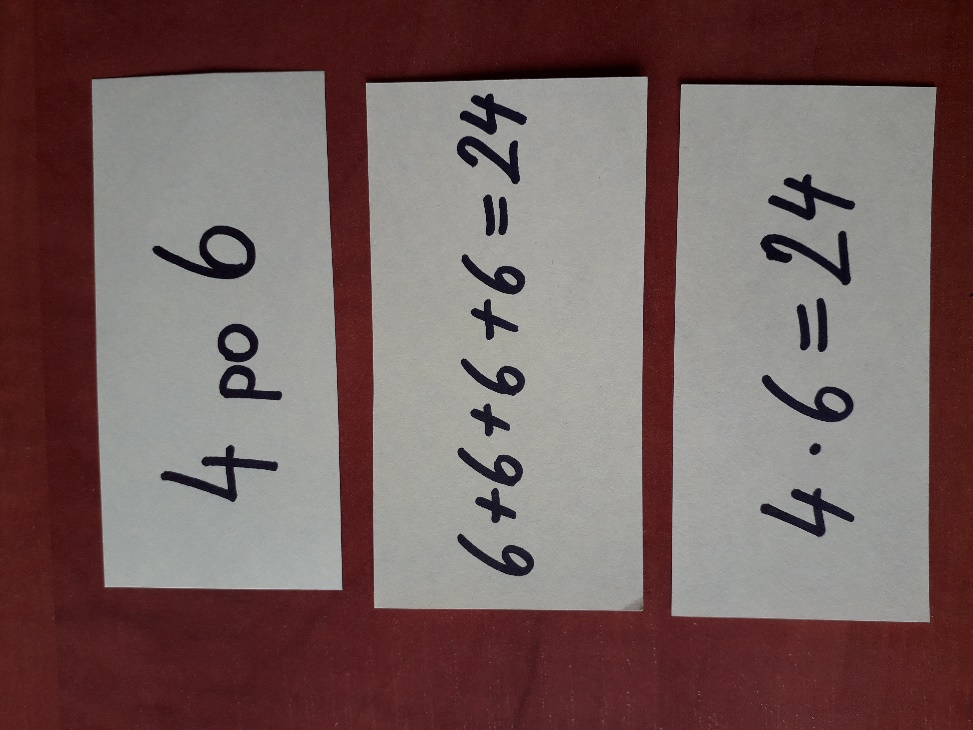 4 po 6
6+6+6+6=24
4·6=24